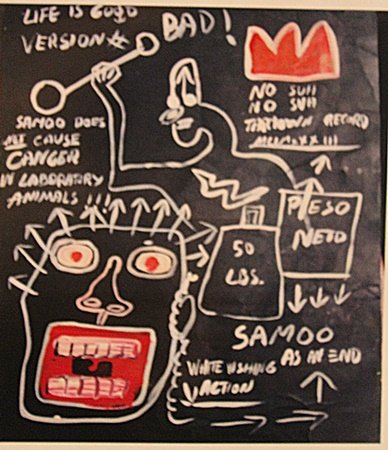 LIFE IS GOOD
VERSION#
BAD!
SAMOO DOES
NOT CAUSE
CANCER
IN LABORATORY
ANIMALS!!!
NO SUH
NO SUH
RECORD
50
LBS.
PESO
NETO
SAMOO
AS AN END
WHITE WASHING
ACTION